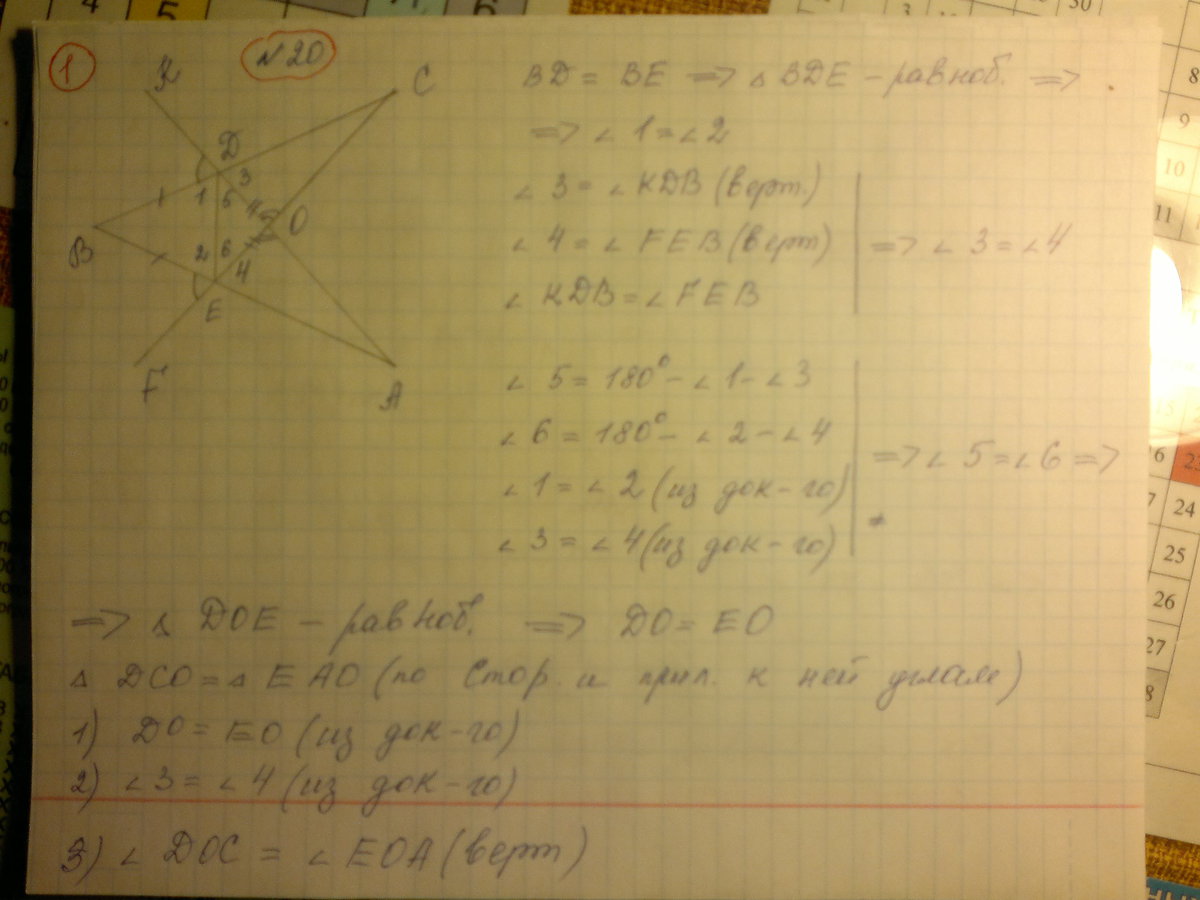 1
N20
K
C
D
3
1 5
4
O
B
2 6
4
E
F
A
BD = BE => △ BDE - равноб. =>
=> ∠ 1 = ∠ 2
∠ 3 = ∠ KDB (верт.)
∠ 4 = ∠ FEB (верт)
∠ KDB = ∠ FEB
=> ∠ 3 = ∠ 4
∠ 5 = 180° - ∠ 1 - ∠ 3
∠ 6 = 180° - ∠ 2 - ∠ 4
∠ 1 = ∠ 2 (из док-го)
∠ 3 = ∠ 4 (из док-го)
=> ∠ 5 = ∠ 6 =>
=> △ DOE - равноб. => DO = EO
△ DCO = △ EAO (по стор. и прил. к ней углам)
1) DO = EO (из док-го)
2) ∠ 3 = ∠ 4 (из док-го)
3) ∠ DOC = ∠ EOA (верт)
4
5
3
30
8
9
10
11
16
24
25
26
27